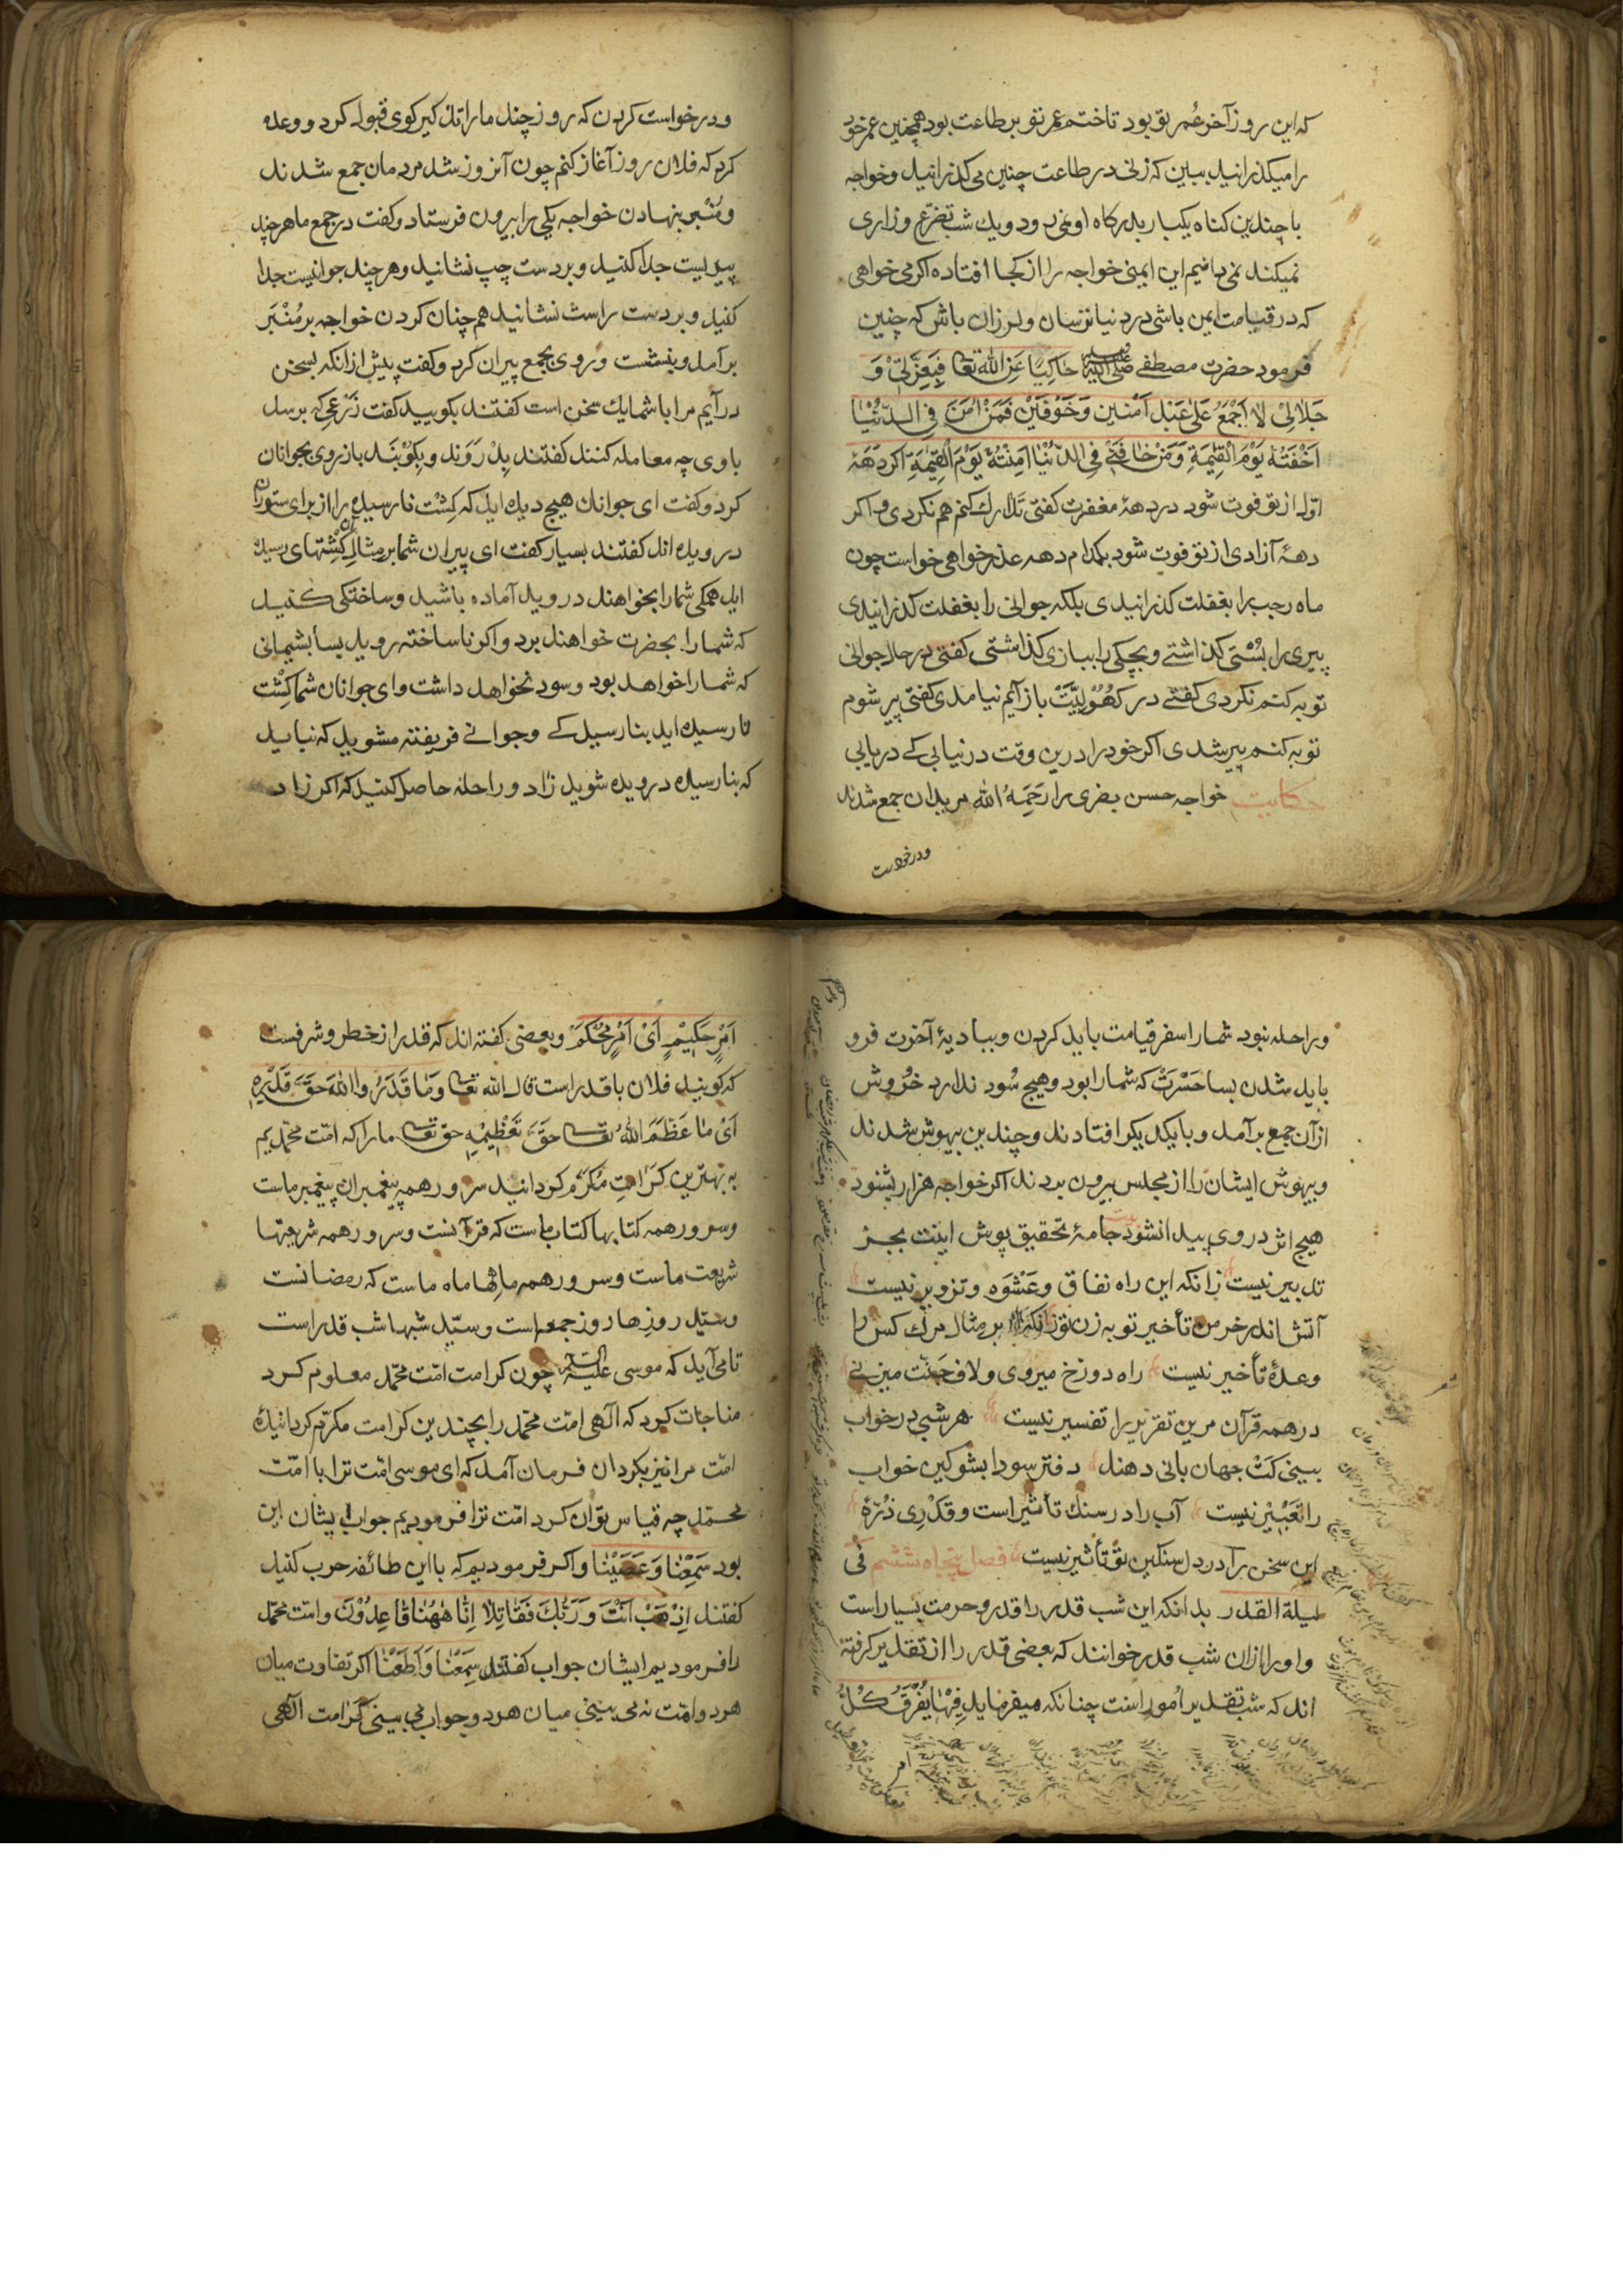 که این روز آخر عمر تو بود تا ختم عمر تو بر طاعت بود همچنین عمر خود
را میکذرانید ببین که زنی در طاعت چنین می کذرانید وخواجه
با چندین کناه یکبار بدرکاه او نمی رود ویک شب تضرّع وزاری
نمیکند نمی دانیم این ایمنی خواجه را از کجا افتاده اکر می خواهی
که در قیامت ایمن باشی در دنیا ترسان ولرزان باش که چنین
فرمود حضرت مصطفی صلی الله علیه حَاکِیًا عَنِ اللهِ تعا فَبِعِزَّتِیْ وَ
جَلَالِیْ لَا اَجْمَعُ عَلیٰ عَبْدٍ اَمْنَیْن وَخَوْفَیْن فَمَنْ اَمِنَ فِی الدُّنْیَا
اَخَفْتُهُ یَوْمَ الْقِیٰمَةِ وَمَنْ خَافَنِیْ فِی الدُّنْیَا اَمِنْتُهُ یَوْمَ الْقِیٰمَةِ اکر دههٔ
اوّل از تو فوت شود در دههٔ مغفرت کفتی تدارک کنم هم نکردی و اکر
دههٔ آزادی از تو فوت شود بکدام دهه عذر خواهی خواست چون
ماه رجب را بغفلت کذرانیدی بلکه جوانی را بغفلت کذرانیدی
پیری را بسُسْتی کذاشتی وبچکی را ببازی کذاشتی کفتی در حال جوانی
توبه کنم نکردی کفتی در کهُوْلِیَّتْ باز آیم نیامدی کفتی پیر شوم
توبه کنم پیر شدی اکر خود را درین وقت در نیابی کی دریابی
حکایت خواجه حسن بصری را رَحِمَهُ الله مریدان جمع شدند
ودرخواست
ودرخواست کردن که روز چند ما را تذکیر کوی قبول کرد ووعده
کرد که فلان روز آغاز کنم چون آنروز شد مردمان جمع شدند
ومنْبر بنهادن خواجه یکی را بیرون فرستاد وکفت در جمع ما هر چند
پیریست جدا کنید وبر دست چپ نشانید وهر چند جوانیست جدا
کنید وبر دست راست نشانید هم چنان کردن خواجه بر مُنْبَر
بر آمد وبنشست وروی بجمع پیران کرد وکفت پیش از انکه بسخن
در آیم مرا با شما یک سخن است کفتند بکویید کفت زَرْعی که برسد
با وی چه معامله کنند کفتند بِدْرَوَند وبِکُوْبَند باز روی بجوانان
کرد وکفت ای جوانان هیچ دیده اید که کِشْت نارسیده را از برای ستوران
درویده اند کفتند بسیار کفت ای پیران شما بر مثال کِشْتهای رسیده
اید همکی شما را بخواهند دروید آماده باشید وساختکی کنید
که شما را بحضرت خواهند برد واکر ناساخته روید بسا پشیمانی
که شما را خواهد بود وسود نخواهد داشت وای جوانان شما کِشْت
نارسیده اید بنارسیدکی وجوانی فریفته مشوید که نباید
که بنارسیده درویده شوید زاد وراحله حاصل کنید که اکر زاد
وراحله نبود شما را سفر قیامت باید کردن وببادیهٔ آخرت فرو
باید شدن بسا حَسْرَتْ که شما را بود وهیچ سُود ندارد خُرُوش
از آن جمع برآمد وبا یکدیکر افتادند وچندین بیهوش شدند
وبیهوش ایشان را از مجلس بیرون بردند اکر خواجه هزار بشنود
هیچ اثر در وی پیدا نشود بیت جامهٔ تحقیق پوش اینت بجز
تدبیر نیست زانکه این راه نفاق وعَشْوَه وتزویر نیست
آتش اندر خرمن تأخیر توبه زن تو زانکه بر مثال مرک کس را
وعدهٔ تأخیر نیست راه دوزخ میروی ولاف جَنّت میزنی
در همه قرآن مرین تقریر را تفسیر نیست هر شبی در خواب
ببینی کَتْ جهان بانی دهند دفتر سودا بشو کین خواب
را تَعْبِیْر نیست آب را در سنک تأثیر است وقَدْرِ ذرّهٔ
این سخن را در دل سنکین تو تأثیر نیست فصل پنجاه ششم فی
لیلة القدر بدانکه این شب قدر را قدر وحرمت بسیار است
واو را ازان شب قدر خوانند که بعضی قدر را از تقدیر کرفته
اند که شب تقدیر اُمور است چنانکه میفرماید فِیْهَا یُفْرَقُ کُلُّ
امر
اَمْرٍ حَکِیْمٍ اَیْ اَمْرٍ مُحْکَمٍ وبعضی کفته اند که قدر از خطر وشرفست
که کویند فلان با قدر است قال الله تعا وَمَا قَدَرُوا اللهَ حَقَّ قَدْرِهِ
اَیْ مَا عَظَّمَ اللهَ تعا حَقَّ تَعْظِیْمِهِ حق تعا ما را که امّت محمّدیم
به بهترین کَرَامتِ مُکَرَّم کردانید سرور همه پیغمبران پیغمبر ماست
وسرور همه کتابها کتاب ماست که قرآنست وسرور همه شریعتها
شریعت ماست وسرور همه ماهها ماه ماست که رمضانست
وسیّد روزها روز جمعه است وسیّد شبها شب قدر است
تا می آید که موسی علیه السلم چون کرامت امّت محمّد معلوم کرد
مناجات کرد که آلهی امّت محمّد را بچندین کرامت مکرّم کردانیدهٔ
امّت مرا نیز بکردان فرمان آمد که ای موسی امّت ترا با امّت
محمّد چه قیاس توان کرد امّت ترا فرمودیم جواب ایشان این
بود سَمِعْنَا وَعَصَیْنَا واکر فرمودیم که با این طائفه حرب کنید
کفتند اِذْهَبْ اَنْتَ وَرَبُّکَ فَقَاتِلَا اِنَّا هٰهُنَا قَاعِدُوْنَ وامّت محمّد
را فرمودیم ایشان جواب کفتند سَمِعْنَا وَاَطَعْنَا اکر تفاوت میان
هر دو امّت نه می بینی میان هر دو جواب می بینی کَرَامت آلهی